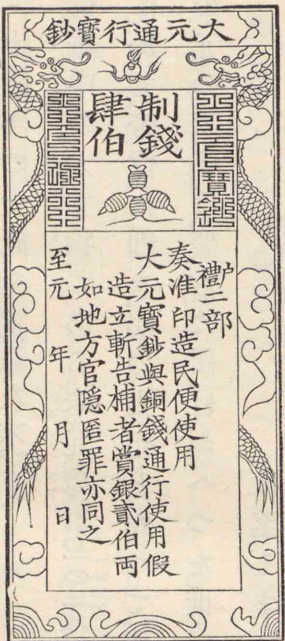 大元通行寶鈔
制錢
肆伯
户禮二部
奏准印造民便使用
大元寶鈔與銅錢通行使用假
造立斬告捕者賞銀貳伯両
如地方官隠匿罪亦同之
至元 年 月 日